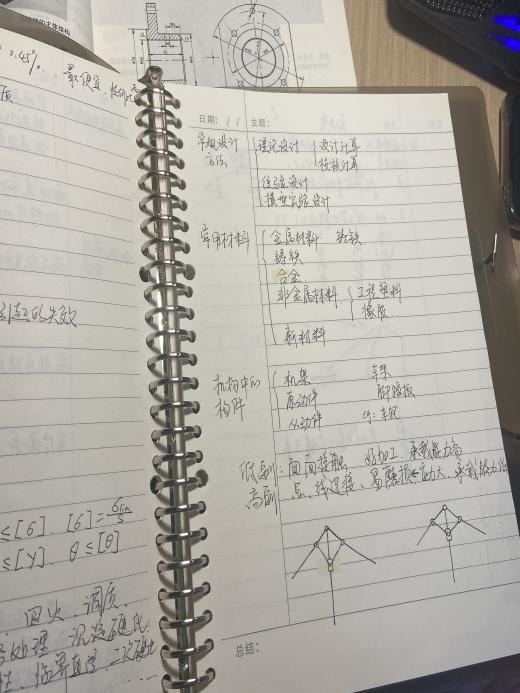 0.45%. 最便宜.
质
引起的失效
≤[σ]. [σ]=σlim/S
≤[y]. θ≤[θ]
回火 调质
处理 沉淀硬化
日期: / / 主题:
常规设计 理论设计 设计计算
方法 校核计算
经验设计
模型实验设计
常用材料 金属材料 铸铁
铸铁
合金
非金属材料 工程塑料
橡胶
新材料
机构中的 机架 车架
构件 原动件 脚踏板
从动件 eg: 车轮
低副: 面面接触 好加工. 承载能力高
高副: 点、线连接、易磨损 ← 应力大、承载能力低
总结: